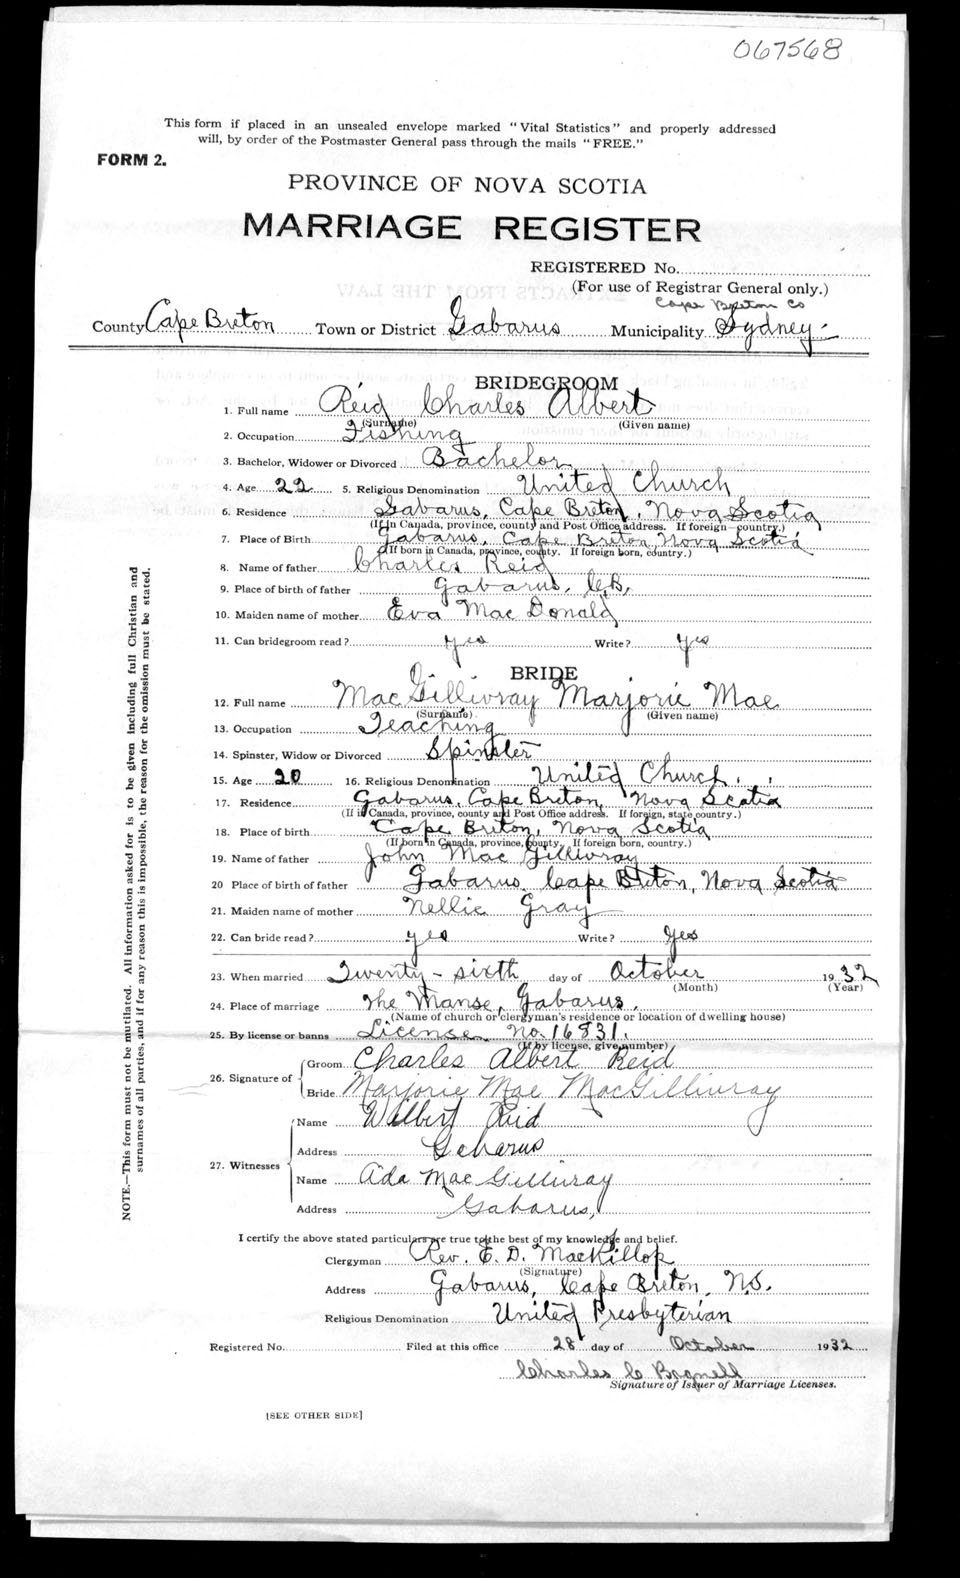 067568
This form if placed in an unsealed envelope marked "Vital Statistics" and properly addressed
will, by order of the Postmaster General pass through the mails "FREE."
FORM 2.
PROVINCE OF NOVA SCOTIA
MARRIAGE REGISTER
REGISTERED No.
(For use of Registrar General only.)
Cape Breton Co
County Cape Breton Town or District Gabarus Municipality Sydney
BRIDEGROOM
1. Full name Reid Charles Albert
(Surname) (Given name)
2. Occupation Fishing
3. Bachelor, Widower or Divorced Bachelor
4. Age 22 5. Religious Denomination United Church
6. Residence Gabarus, Cape Breton, Nova Scotia
(If in Canada, province, county and Post Office address. If foreign—country.)
7. Place of Birth Gabarus, Cape Breton, Nova Scotia
(If born in Canada, province, county. If foreign born, country.)
8. Name of father Charles Reid
9. Place of birth of father Gabarus, C.B.
10. Maiden name of mother Eva Mac Donald
11. Can bridegroom read? yes Write? yes
BRIDE
12. Full name MacGillivray Marjorie Mae
(Surname) (Given name)
13. Occupation Teaching
14. Spinster, Widow or Divorced Spinster
15. Age 20 16. Religious Denomination United Church
17. Residence Gabarus, Cape Breton, Nova Scotia
(If in Canada, province, county and Post Office address. If foreign, state country.)
18. Place of birth Cape Breton, Nova Scotia
(If born in Canada, province, county. If foreign born, country.)
19. Name of father John MacGillivray
20 Place of birth of father Gabarus, Cape Breton, Nova Scotia
21. Maiden name of mother Nellie Gray
22. Can bride read? yes Write? yes
23. When married Twenty-sixth day of October 1932
(Month) (Year)
24. Place of marriage The Manse, Gabarus.
(Name of church or clergyman's residence or location of dwelling house)
25. By license or banns License No. 16831.
(If by license, give number)
26. Signature of Groom Charles Albert Reid
Bride Marjorie Mae MacGillivray
27. Witnesses
Name Wilbert Reid
Address Gabarus
Name Ada MacGillivray
Address Gabarus,
I certify the above stated particulars are true to the best of my knowledge and belief.
Clergyman Rev. E. D. MacKillop
(Signature)
Address Gabarus, Cape Breton, N.S.
Religious Denomination United Presbyterian
Registered No. Filed at this office 28 day of October 1932
Charles C Bagnell
Signature of Issuer of Marriage Licenses.
[SEE OTHER SIDE]
NOTE.—This form must not be mutilated. All information asked for is to be given including full Christian and
surnames of all parties, and if for any reason this is impossible, the reason for the omission must be stated.